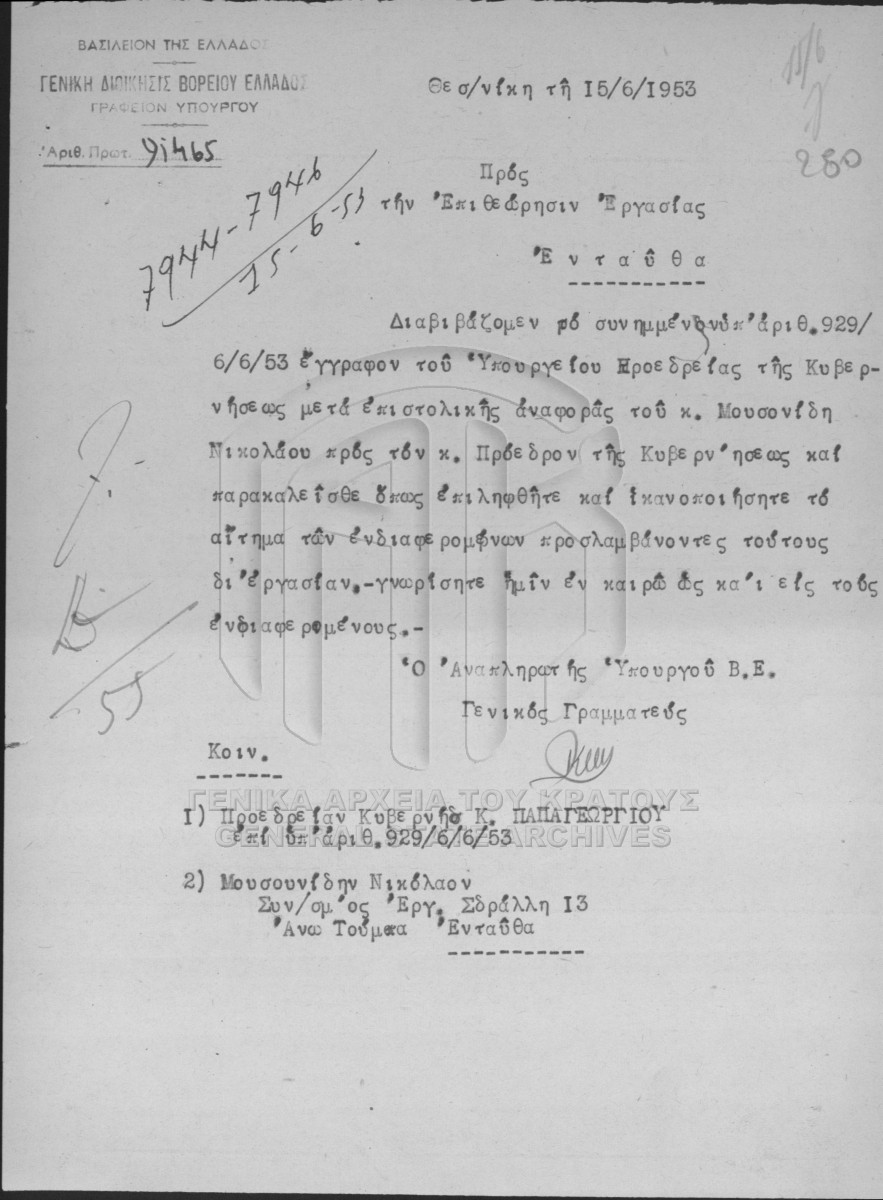 ΒΑΣΙΛΕΙΟΝ ΤΗΣ ΕΛΛΑΔΟΣ
ΓΕΝΙΚΗ ΔΙΟΙΚΗΣΙΣ ΒΟΡΕΙΟΥ ΕΛΛΑΔΟΣ
ΓΡΑΦΕΙΟΝ ΥΠΟΥΡΓΟΥ
Ἀριθ. Πρωτ.
Θεσ/νίκη τῆ 15/6/1953
15/6
280
7944-7946
15-6-53
Πρός
τήν Ἐπιθεώρησιν Ἐργασίας
Ἐ ν τ α ῦ θ α
Διαβιβάζομεν τό συνημμένον ὑπ'ἀριθ.929/
6/6/53 ἔγγραφον τοῦ Ὑπουργείου Προεδρείας τῆς Κυβερ-
νήσεως μετά ἐπιστολικῆς ἀναφορᾶς τοῦ κ. Μουσονίδη
Νικολάου πρός τόν κ. Πρόεδρον τῆς Κυβερν'ησεως καί
παρακαλεῖσθε ὅπως ἐπιληφθῆτε καί ἱκανοποιήσητε τό
αἴτημα τῶν ἐνδιαφερομένων προσλαμβάνοντες τούτους
δι'ἐργασίαν.-γνωρίσητε ἡμῖν ἐν καιρῶ ὡς κα'ι εἰς τούς
ἐνδιαφερομένους.-
Ὁ Ἀναπληρωτής Ὑπουργοῦ Β.Ε.
Γενικός Γραμματεύς
53
Κοιν.
ΓΕΝΙΚΑ ΑΡΧΕΙΑ ΤΟΥ ΚΡΑΤΟΥΣ
1) Προεδρείαν Κυβερνήσ Κ. ΠΑΠΑΓΕΩΡΓΙΟΥ
GENERAL STATE ARCHIVES
ἐπί ὑπ'ἀριθ.929/6/6/53
2) Μουσουνίδην Νικόλαον
Συν/σμ'ος Ἐργ. Σδράλλη 13
Ἀνω Τούμπα Ἐνταῦθα